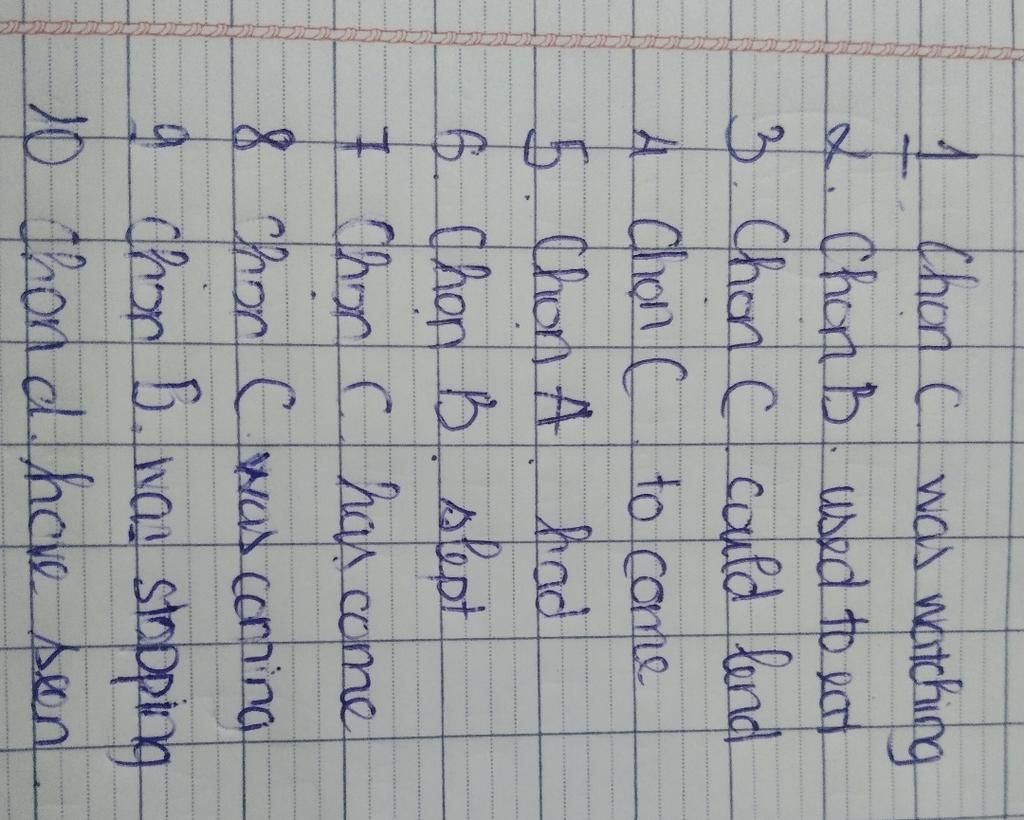 1 Chọn C was watching
2. Chọn B. used to eat
3. Chọn C could lend
4 Chọn C to come
5. Chọn A had
6. Chọn B slept
7 Chọn C has come
8 Chọn C was coming
9 Chọn B. was stopping
10 Chọn d. have seen.